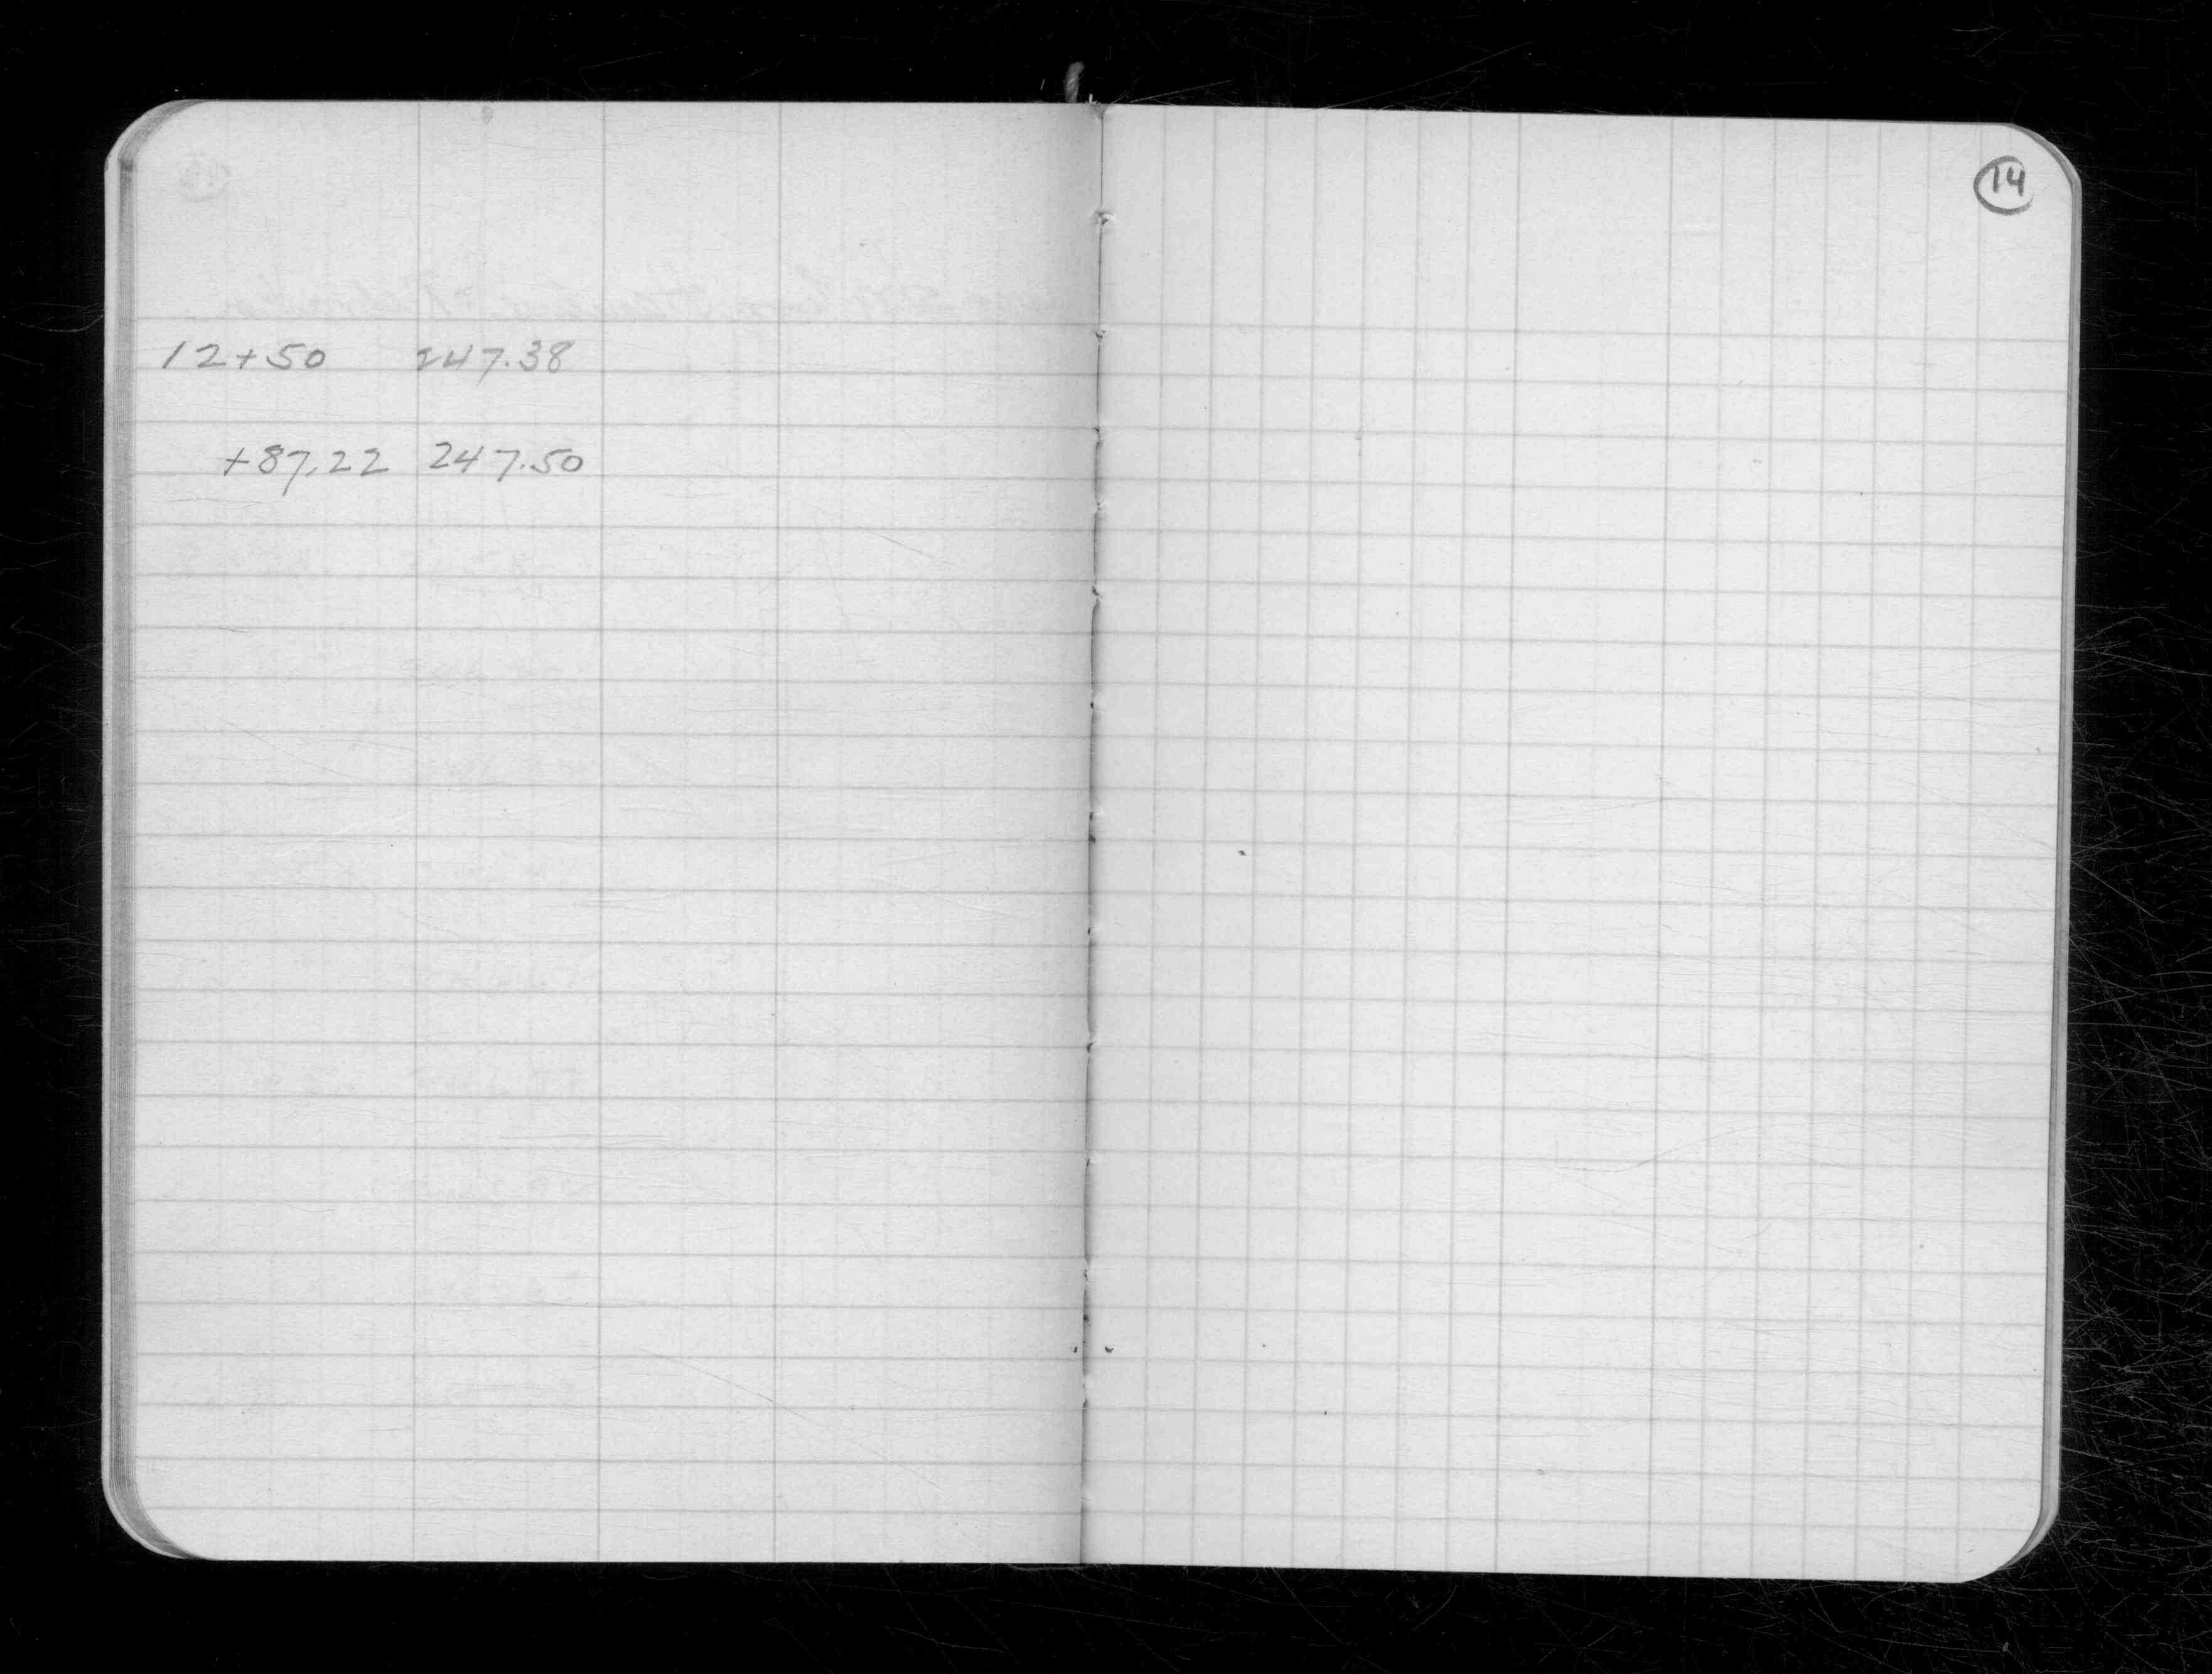 12+50 247.38
+87.22 247.50
14